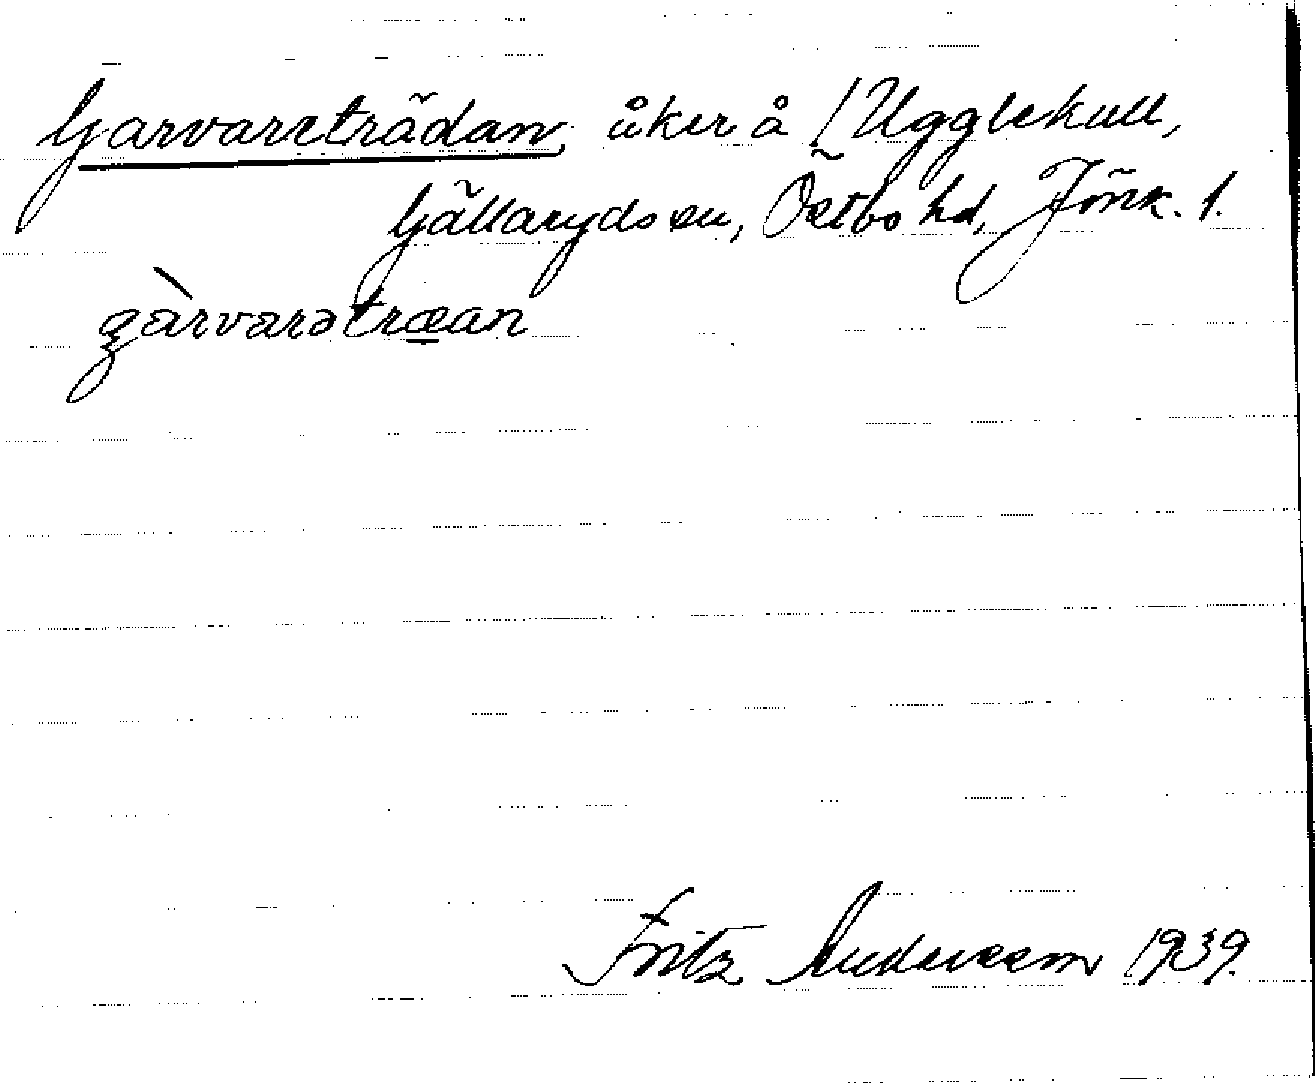 Garvareträdan, åker å Ugglekull,
Gällaryds sn, Östbo hd, Jönk. l.
gàrvarətræan
Fritz Andersson 1939.